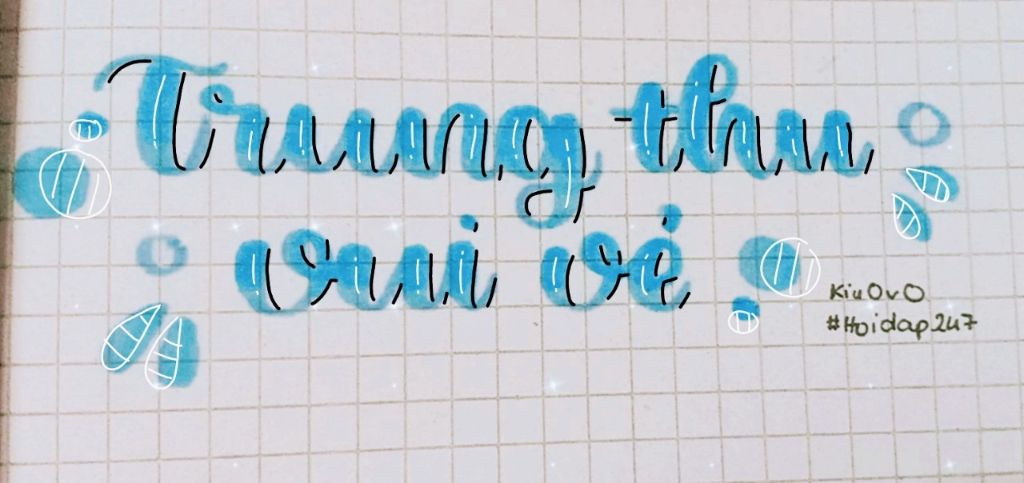 Trung thu
vui vẻ
KiuOvO
#Hoidap247